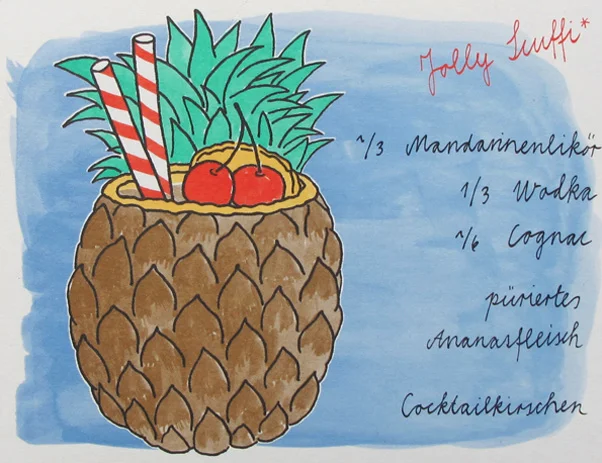 Jolly Suffi*
1/3 Mandarinenlikör
1/3 Wodka
1/6 Cognac
püriertes
Ananasfleisch
Cocktailkirschen